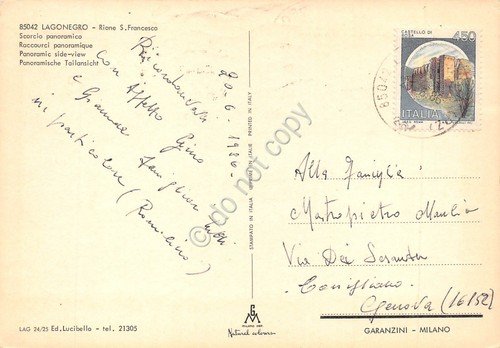 85042 LAGONEGRO - Rione S. Francesco
Scorcio panoramico
Raccourci panoramique
Panoramic side-view
Panoramische Teilansicht
20.6.1986
Ricordandovi
con Affetto Gino
e Grande famiglia
in particolare (
STAMPATO IN ITALIA - MADE IN ITALY - PRINTED IN ITALY
do not copy
CASTELLO DI
450
ITALIA
85042
Alla Famiglia
Mastropietro
Via Dei
Cornigliano
Genova (16152)
GM
MILANO
Natural colours
LAG 24/25 Ed. Lucibello - tel. 21305
GARANZINI - MILANO